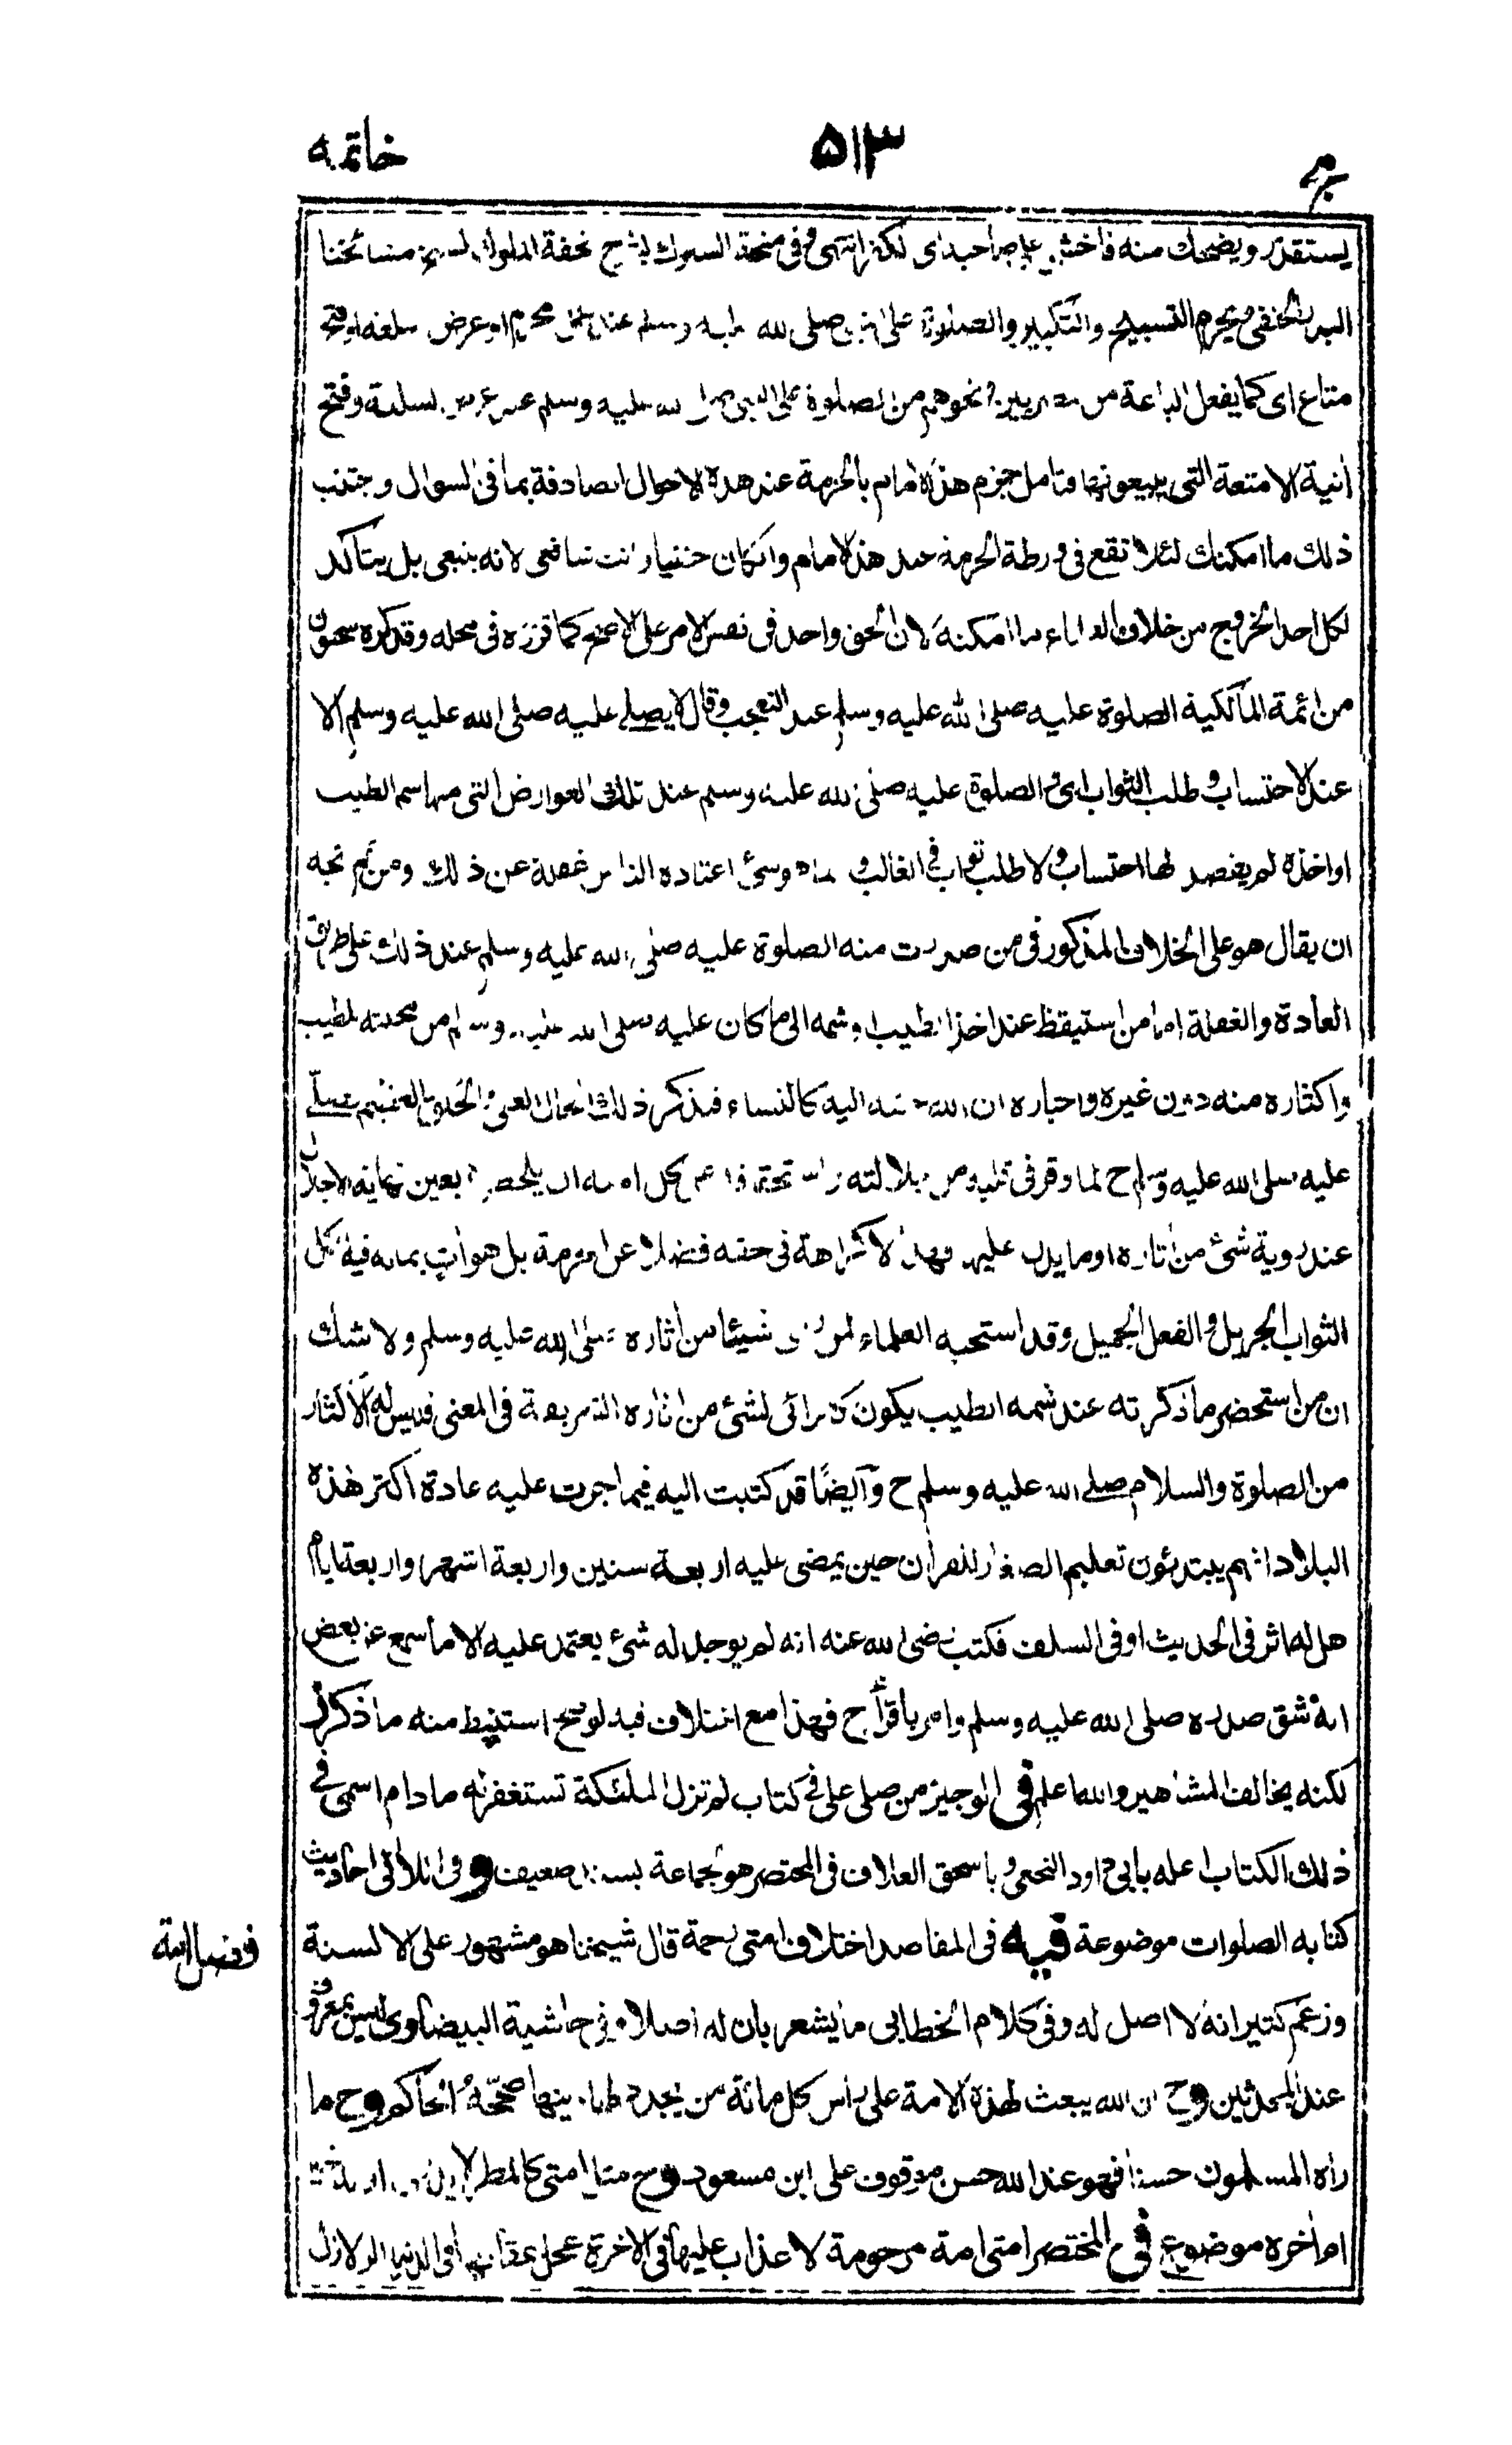 خاتمه ۵۱۳
يستقذر ويضحك منه فاخشى على صاحبه اى الكفر انتهى وفى منحة السلوك لشرح تحفة الملوك لشيخ مشائخنا
البدر الحنفى ويحرم التسبيح والتكبير والصلوة على النبى صلى الله عليه وسلم عند عمل محرم او عرض سلعة او فتح
متاع اى كما يفعل الباعة من ونحوهم من الصلوة على النبى صلى الله عليه وسلم عند عرض السلعة وفتح
انية الامتعة التى يبيعونها فتامل جزم هذا الامام بالحرمة عند هذه الاحوال الصادقة بما فى السوال وجتنب
ذلك ما امكنك لئلا تقع فى ورطة الحرمة عند هذا الامام وان كان حنفيا وانت شافعى لانه ينبغى بل يتاكد
لكل احد الخروج من خلاف العلماء ما امكنه لان الحق واحد فى نفس الامر على الاصح كما قررته فى محله وقد كره سحنون
من ائمة المالكية الصلوة عليه صلى الله عليه وسلم عند التعجب وقال لا يصلى عليه صلى الله عليه وسلم الا
عند الاحتساب وطلب الثواب اى والصلوة عليه صلى الله عليه وسلم عند تلك العوارض التى منها شم الطيب
او اخذه لم يقصد لها احتساب ولا طلب ثواب فى الغالب وشئ اعتاده الناس غفلة عن ذلك ومن ثم تجه
ان يقال هو على الخلاف المذكور فى من صدرت منه الصلوة عليه صلى الله عليه وسلم عند ذلك على طريق
العادة والغفلة اما من استيقظ عند اخذ الطيب او شمه الى ما كان عليه صلى الله عليه وسلم من محبته للطيب
واكثاره منه دون غيره واخباره ان الله حببه اليه كالنساء فتذكر ذلك الحال العلى والخلق العظيم فصلى
عليه صلى الله عليه وسلم ح لما وقر فى قلبه من جلالته على كل امته ان يلحظوه بعين نهاية الاجلال
عند روية شئ من اثاره او ما يدل عليها فهذا لا كراهة فى حقه فضلا عن الحرمة بل هو ات بما له فيه اكمل
الثواب الجزيل والفعل الجميل وقد استحبه العلماء لمن راى شيئا من اثاره صلى الله عليه وسلم ولا شك
ان من استحضر ما ذكرته عند شمه الطيب يكون كالرائى لشئ من اثاره الشريفة فى المعنى فليس له الا الاكثار
من الصلوة والسلام صلى الله عليه وسلم ح وايضًا قد كتبت اليه فيما جرت عليه عادة اكثر هذه
البلاد انهم يبتدئون تعليم الصغار للقران حين يمضى عليه اربعة سنين واربعة اشهر واربعة ايام
هل له اثر فى الحديث او فى السلف فكتب رضى الله عنه انه لم يوجد له شئ يعتمد عليه الا ما سمع عن بعض
انه شق صدره صلى الله عليه وسلم وامر باقرأ ح فهذا مع اختلاف فيه لو صح استنبط منه ما ذكر
لكنه يخالف المشاهير والله اعلم فى الوجيز من صلى على فى كتاب لم تزل الملئكة تستغفر له ما دام اسمى فى
ذلك الكتاب اعله بابى داود النخعى وباسحق العلاف فى المختصر هو لجماعة بسند ضعيف وفى اللالى احاديث
كتابه الصلوات موضوعة فيه فى المقاصد اختلاف امتى رحمة قال شيخنا هو مشهور على الالسنة
فضل الامة
وزعم كثير انه لا اصل له وفى كلام الخطابى ما يشعر بان له اصلا وفى حاشية البيضاوى ليس بمعروف
عند المحدثين وح ان الله يبعث لهذة الامة على راس كل مائة من يجدد لها دينها صححه الحاكم وح ما
راه المسلمون حسنا فهو عند الله حسن موقوف على ابن مسعود وح مثل امتى كالمطر لا يدرى اوله
ام اخره موضوع وفى المختصر امتى امة مرحومة لا عذاب عليها فى الاخرة عجل عقابها فى الدنيا الزلازل